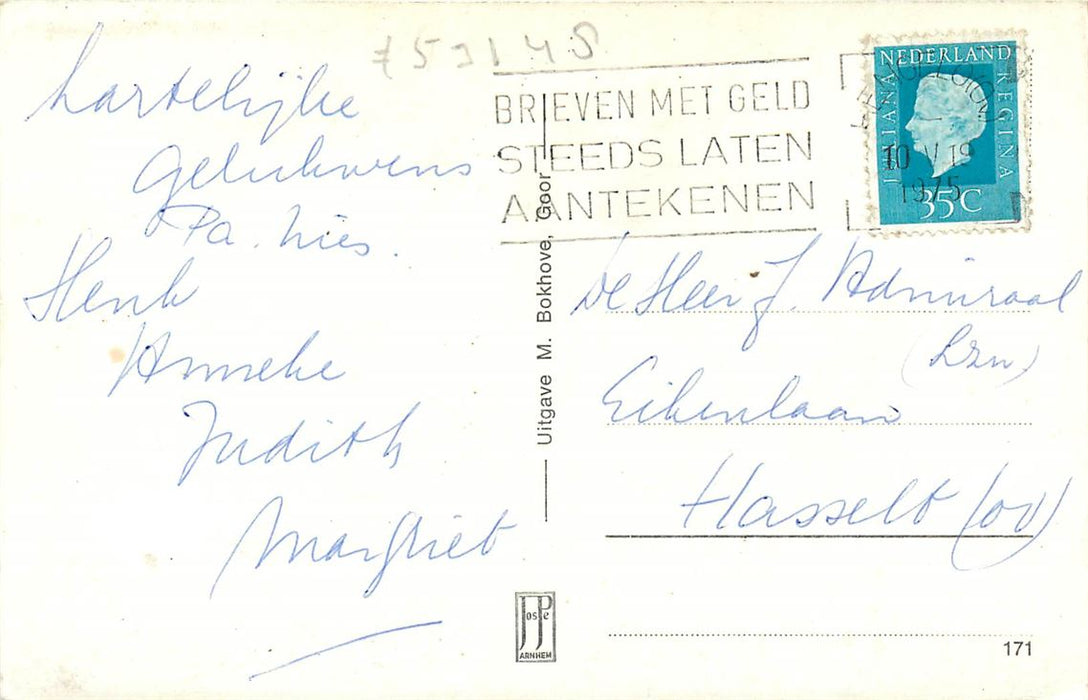 hartelijke
Gelukwens
Pa. Mies.
Henk
Anneke
Judith
Margriet
753145
BRIEVEN MET GELD
STEEDS LATEN
AANTEKENEN
HENGELO (OV)
10 V 19
1975
NEDERLAND
JULIANA
REGINA
35C
Uitgave M. Bokhove, Goor
De Heer J. Admiraal
(Lzn)
Eikenlaan
Hasselt (ov)
JosPe
ARNHEM
171